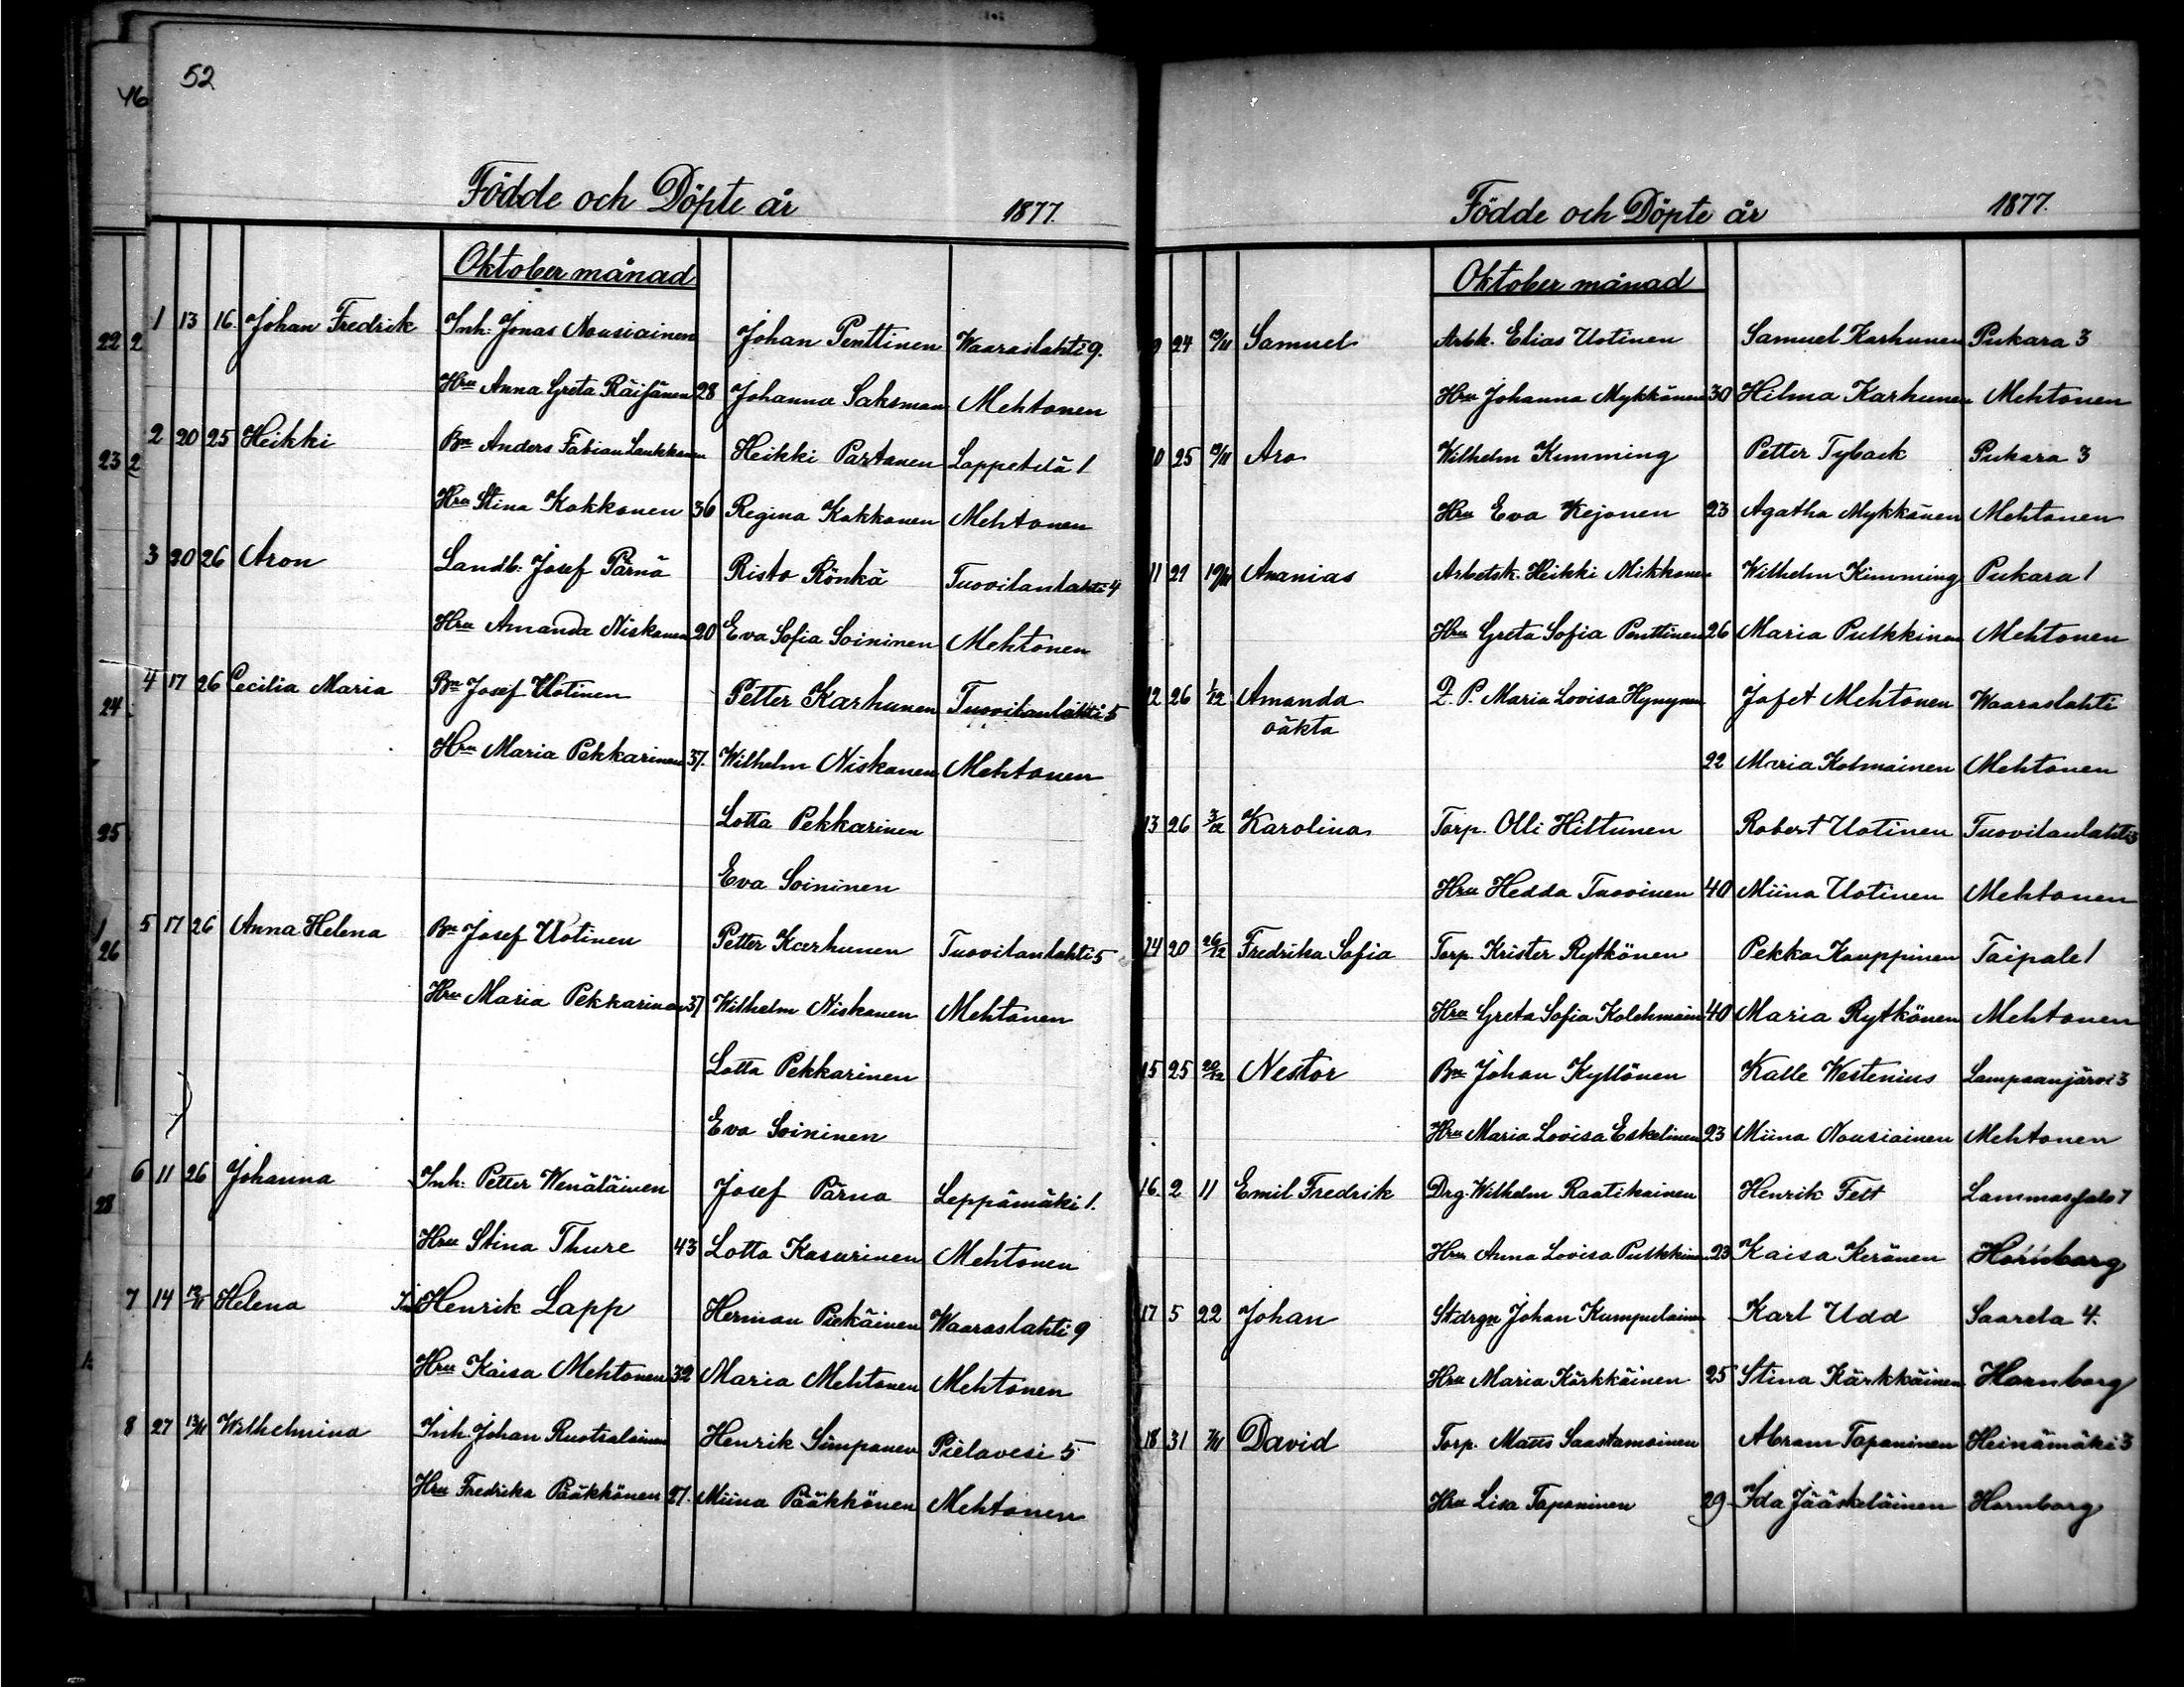 46
52
Födde och Döpte år 1877.
Oktober månad
1 13 16. Johan Fredrik Inh. Jonas Nousiainen Johan Penttinen Waaraslahti 9.
Hru Anna Greta Räisänen 28 Johanna Saksman Mehtonen
2 20 25 Heikki Bn Anders Fabian Laukkanen Heikki Partanen Lappetelä 1
Hru Stina Kokkonen 36 Regina Kokkonen Mehtonen
3 20 26 Aron Landb. Josef Pärnä Risto Rönkä Tuovilanlahti 4
Hru Amanda Niskanen 20 Eva Sofia Soininen Mehtonen
4 17 26 Cecilia Maria Bn Josef Uotinen Petter Karhunen Tuovilanlahti 5
Hru Maria Pekkarinen 37. Wilhelm Niskanen Mehtonen
Lotta Pekkarinen
Eva Soininen
5 17 26 Anna Helena Bn Josef Uotinen Petter Karhunen Tuovilanlahti 5
Hru Maria Pekkarinen 37 Wilhelm Niskanen Mehtonen
Lotta Pekkarinen
Eva Soininen
6 11 26 Johanna Inh. Petter Wenäläinen Josef Pärna Leppämäki 1.
Hru Stina Thure 43 Lotta Kasurinen Mehtonen
7 14 12/11 Helena Inh Henrik Lapp Herman Piekäinen Waaraslahti 9
Hru Kaisa Mehtonen 32 Maria Mehtonen Mehtonen
8 27 13/11 Wilhelmina Inh. Johan Ruotsalainen Henrik Simponen Pielavesi 5
Hru Fredrika Pääkkönen 27. Miina Pääkkönen Mehtonen
Födde och Döpte år 1877.
Oktober månad
9 24 19/11 Samuel Arbk. Elias Uotinen Samuel Karhunen Pukara 3
Hru Johanna Mykkänen 30 Hilma Karhunen Mehtonen
10 25 19/11 Aro Wilhelm Kimming Petter Tyback Pukara 3
Hru Eva Kejonen 23 Agatha Mykkänen Mehtonen
11 21 19/11 Ananias Arbetsk. Heikki Mikkonen Wilhelm Kimming Pukara 1
Hru Greta Sofia Penttinen 26 Maria Pulkkinen Mehtonen
12 26 1/12 Amanda Q. P. Maria Lovisa Hynynen Jafet Mehtonen Waaraslahti
oäkta
22 Maria Kolmainen Mehtonen
13 26 3/12 Karolina Torp. Olli Hiltunen Robert Uotinen Tuovilanlahti 3
Hru Hedda Tuovinen 40 Miina Uotinen Mehtonen
14 20 26/12 Fredrika Sofia Torp. Krister Rytkönen Pekka Kauppinen Taipale 1
Hru Greta Sofia Kolehmain 40 Maria Rytkönen Mehtonen
15 25 29/12 Nestor Bn Johan Kyllönen Kalle Westenius Lampaanjärvi 3
Hru Maria Lovisa Eskelinen 23 Miina Nousiainen Mehtonen
16. 2 11 Emil Fredrik Drg. Wilhelm Raatikainen Henrik Felt
Hru Anna Lovisa Pulkkinen 23 Kaisa Keränen Hornborg
17 5 22 Johan Stdrgn Johan Kumpulainen Karl Udd Saarela 4.
Hru Maria Kärkkäinen 25 Stina Kärkkäinen Hornborg
18 31 7/11 David Torp. Matts Saastamoinen Abram Taponinen Heinämäki 3
Hru Lisa Taponinen 29 Ida Jääskeläinen Hornborg